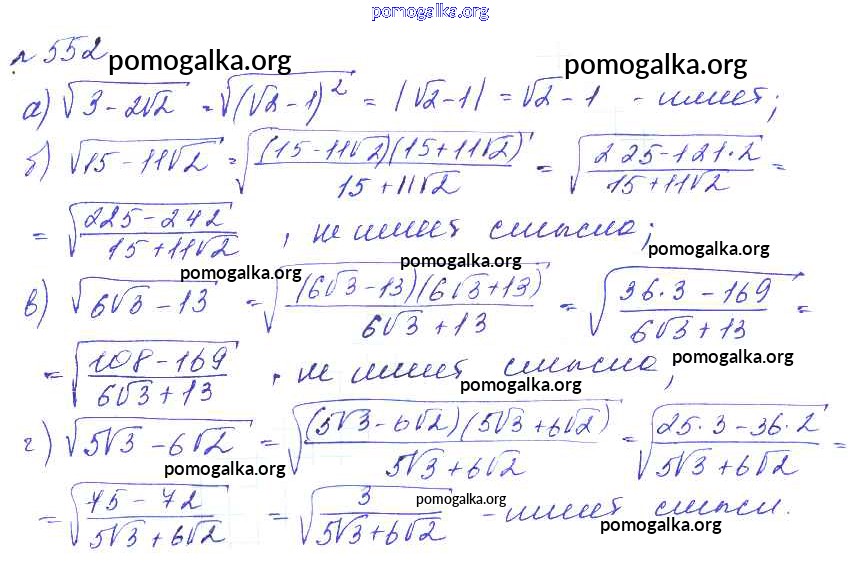 pomogalka.org
№ 552
pomogalka.org pomogalka.org
а) √(3 - 2√2) = √((√2 - 1)²) = |√2 - 1| = √2 - 1 - имеет;
б) √(15 - 11√2) = √((15 - 11√2)(15 + 11√2) / (15 + 11√2)) = √((225 - 121·2) / (15 + 11√2)) =
= √((225 - 242) / (15 + 11√2)), не имеет смысла;
pomogalka.org pomogalka.org pomogalka.org
в) √(6√3 - 13) = √((6√3 - 13)(6√3 + 13) / (6√3 + 13)) = √((36·3 - 169) / (6√3 + 13)) =
= √((108 - 169) / (6√3 + 13)), не имеет смысла,
pomogalka.org pomogalka.org
г) √(5√3 - 6√2) = √((5√3 - 6√2)(5√3 + 6√2) / (5√3 + 6√2)) = √((25·3 - 36·2) / (5√3 + 6√2)) =
pomogalka.org
= √((75 - 72) / (5√3 + 6√2)) = √(3 / (5√3 + 6√2)) - имеет смысл.
pomogalka.org pomogalka.org